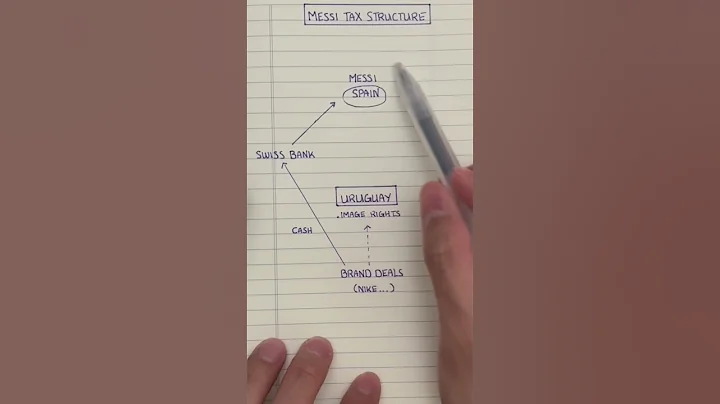 MESSI TAX STRUCTURE
MESSI
SPAIN
SWISS BANK
URUGUAY
.IMAGE RIGHTS
CASH
BRAND DEALS
(NIKE...)